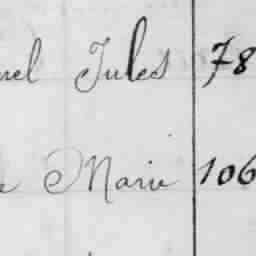 uel Jules 78
e Marie 106